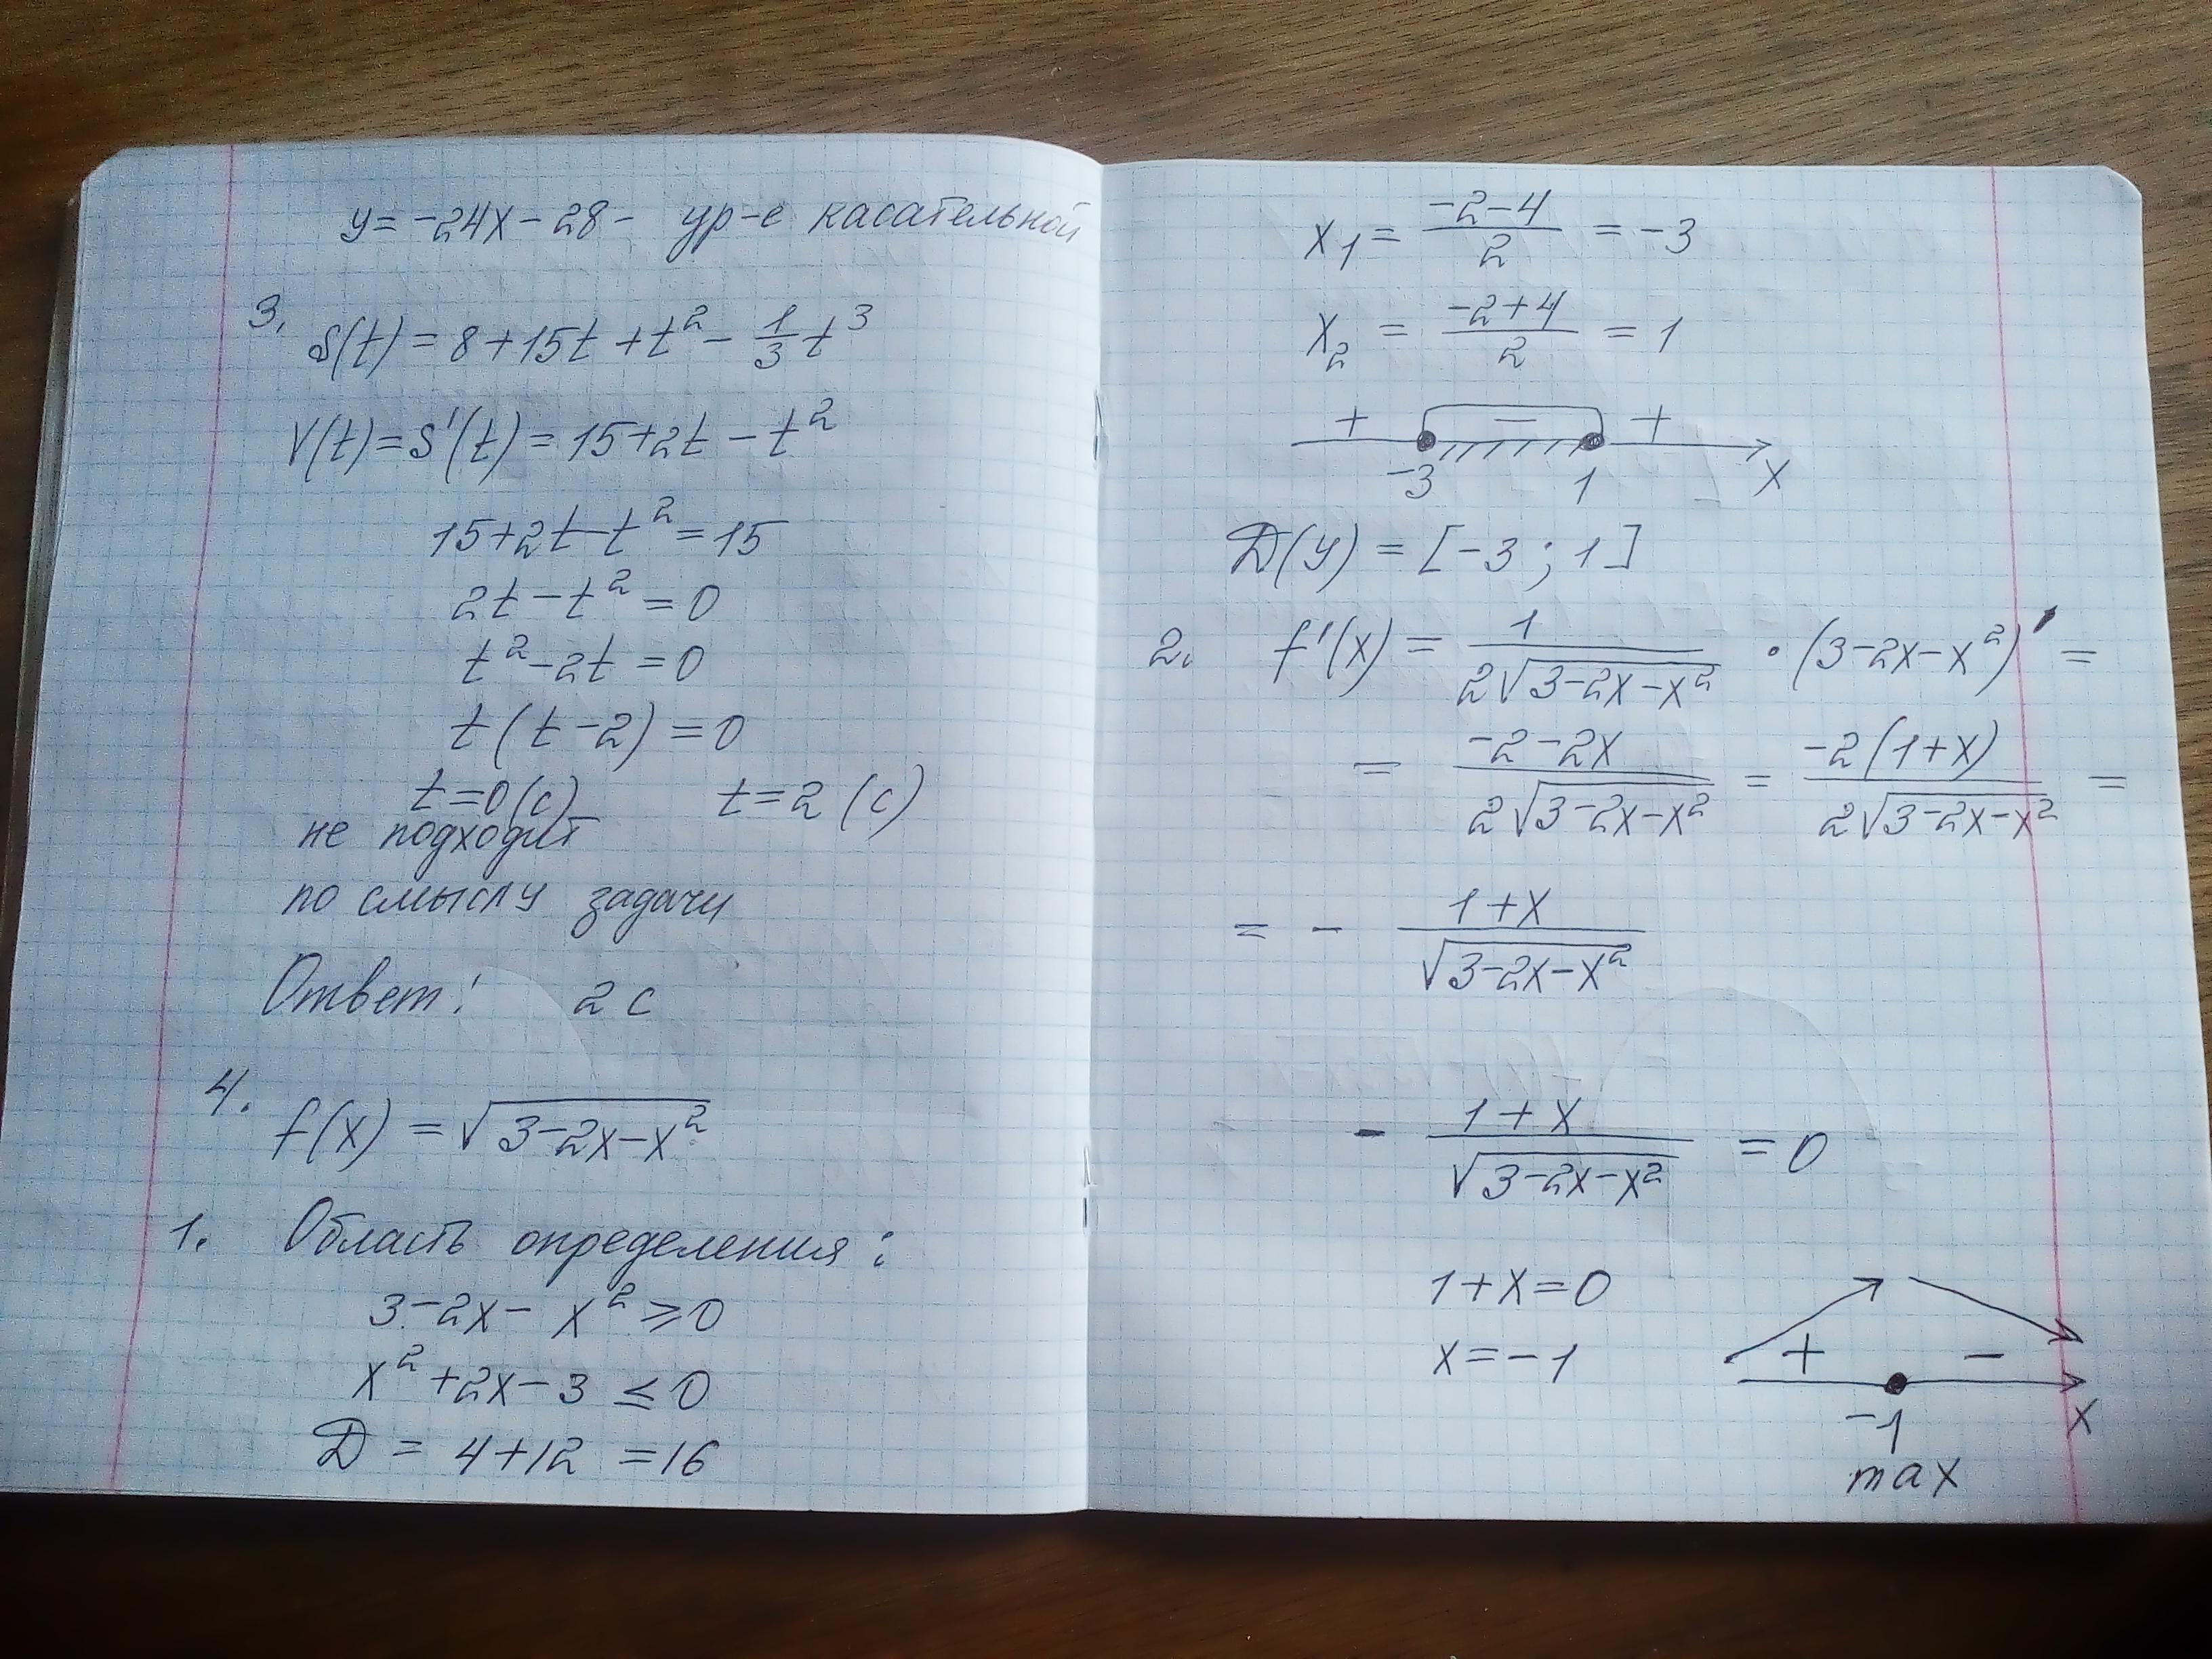 y = -24x - 28 - ур-е касательной
3. S(t) = 8 + 15t + t² - 1/3 t³
V(t) = S'(t) = 15 + 2t - t²
15 + 2t - t² = 15
2t - t² = 0
t² - 2t = 0
t(t - 2) = 0
t = 0 (с) t = 2 (с)
не подходит
по смыслу задачи
Ответ: 2 с
4. f(x) = √(3 - 2x - x²)
1. Область определения:
3 - 2x - x² ≥ 0
x² + 2x - 3 ≤ 0
D = 4 + 12 = 16
x₁ = (-2 - 4)/2 = -3
x₂ = (-2 + 4)/2 = 1
+ - +
-3 1 x
D(y) = [-3; 1]
2. f'(x) = 1/(2√(3 - 2x - x²)) · (3 - 2x - x²)' =
= (-2 - 2x)/(2√(3 - 2x - x²)) = -2(1 + x)/(2√(3 - 2x - x²)) =
= - (1 + x)/√(3 - 2x - x²)
- (1 + x)/√(3 - 2x - x²) = 0
1 + x = 0
x = -1
+ -
-1 x
max